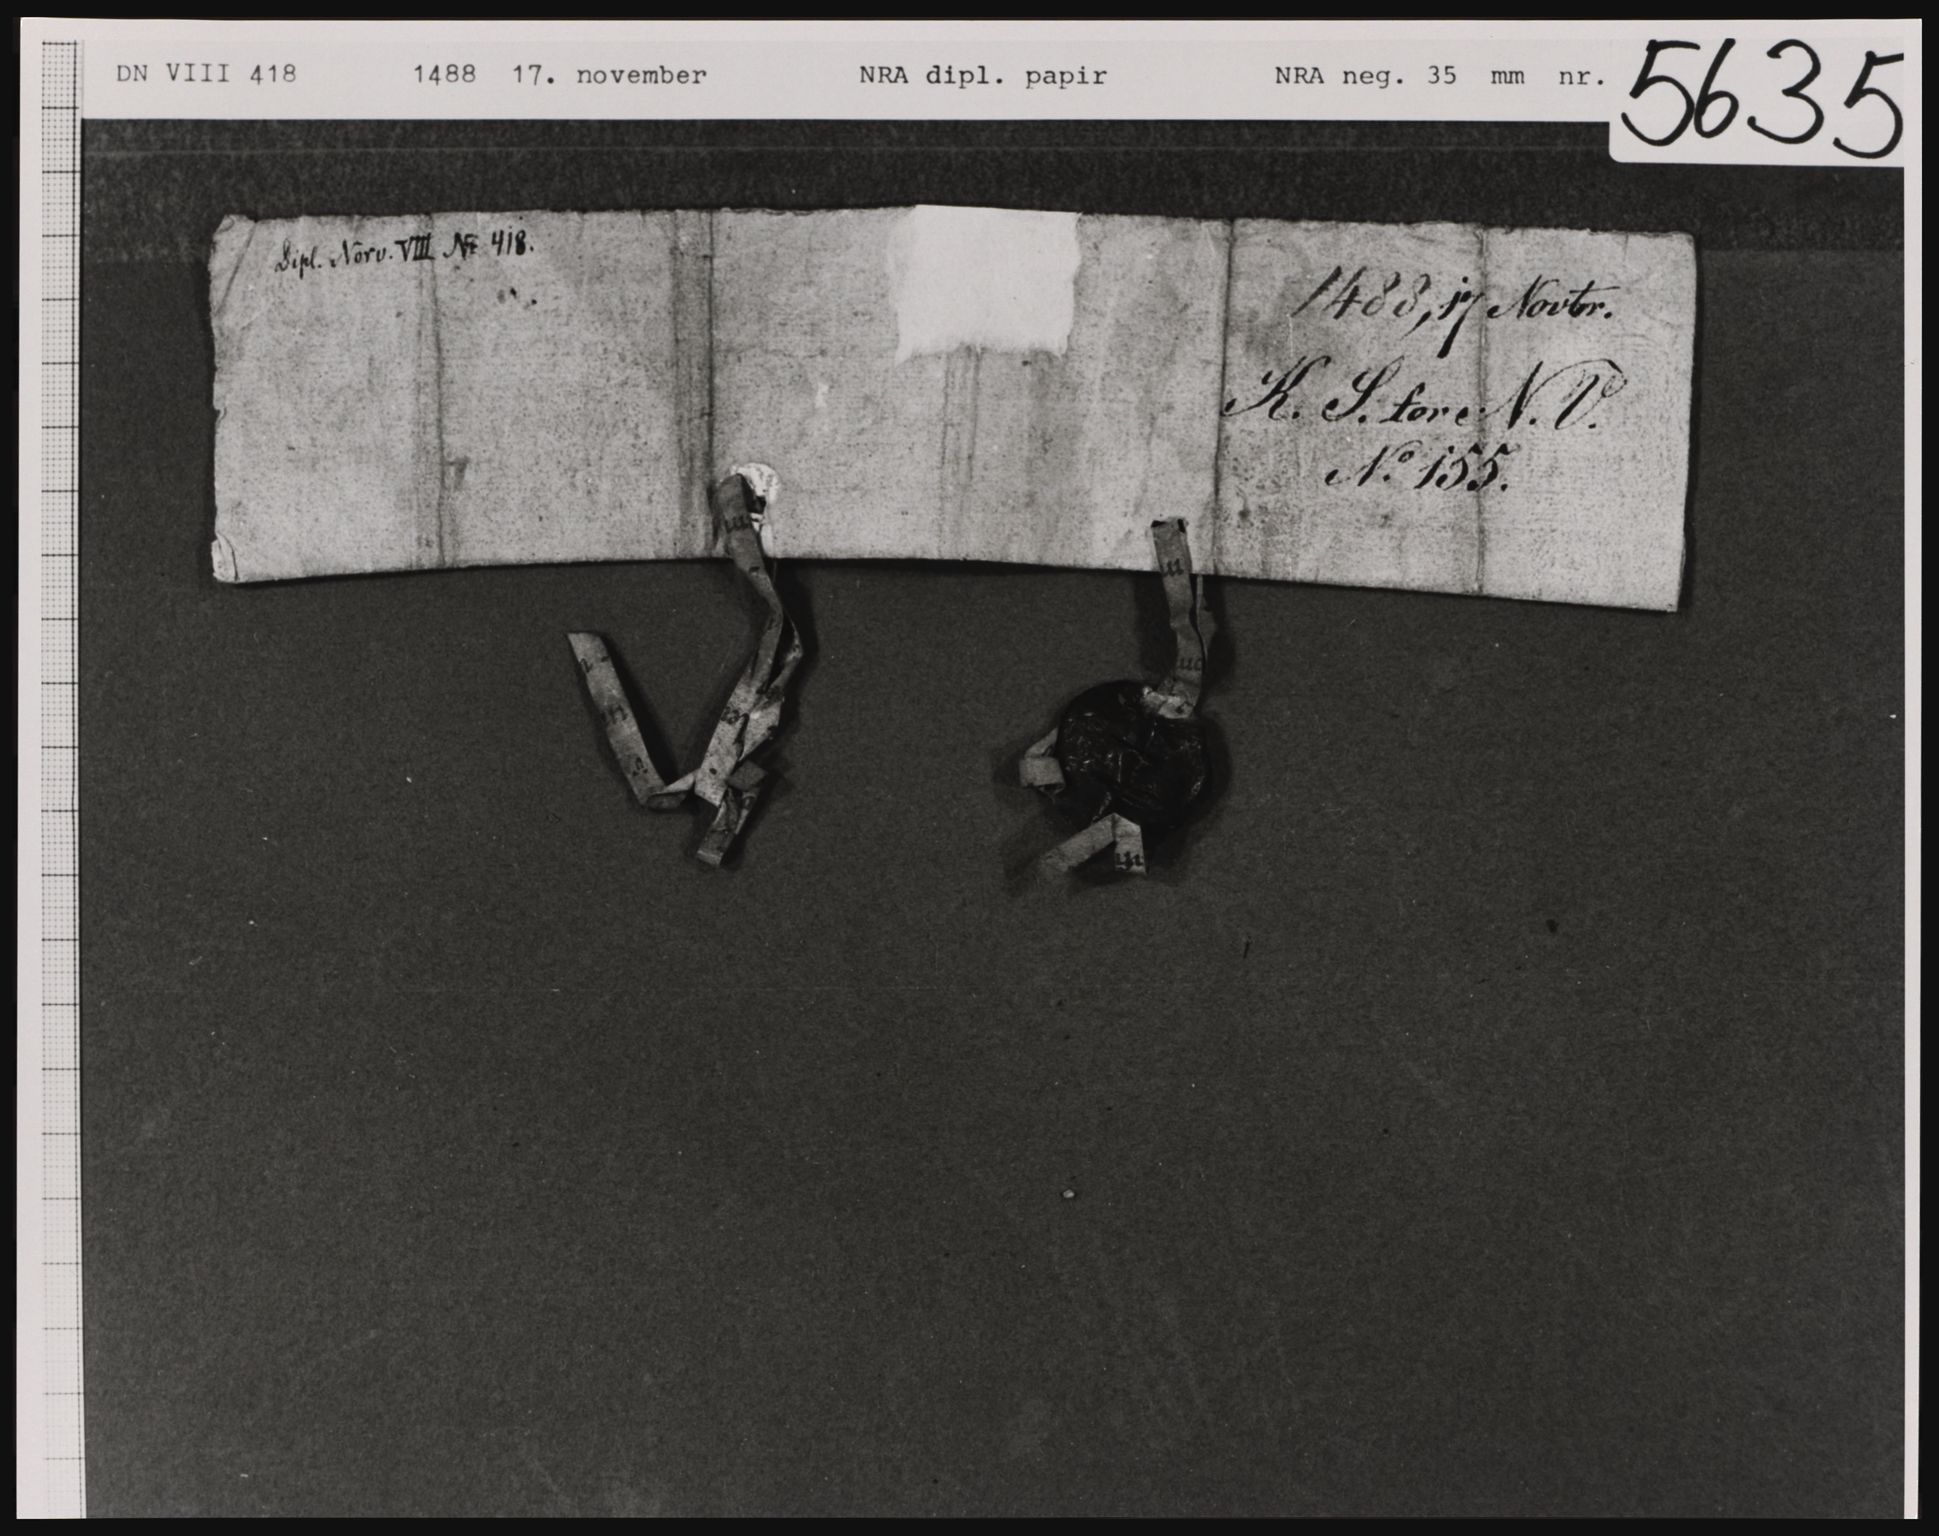 DN VIII 418 1488 17. november NRA dipl. papir NRA neg. 35 mm nr. 5635
Dipl. Norv. VIII No 418.
1488, 17 Novbr.
K. S. fore N. V.
No 155.